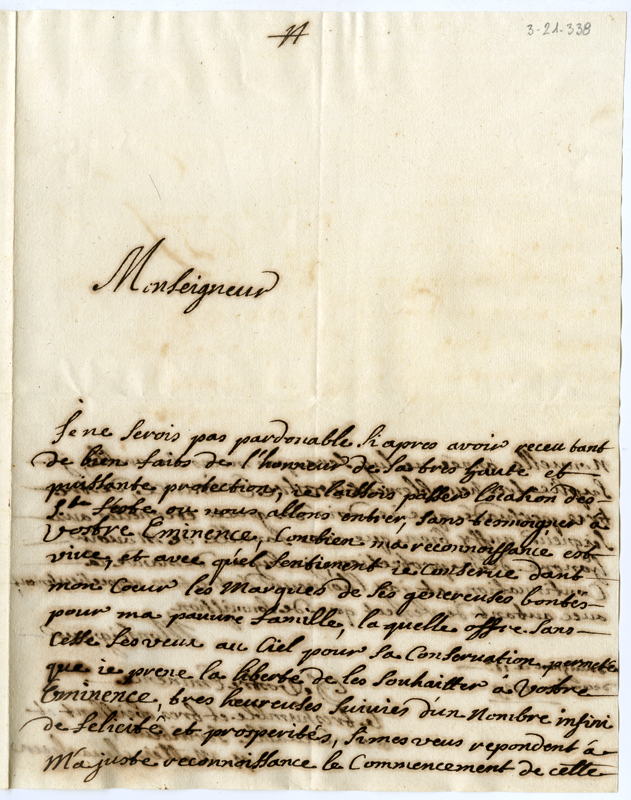 3-21-338
Monseigneur
Je ne serois pas pardonable si apres avoir receu tant
de bien faits de l'honneur de sa tres haute et
puissante protection, ie laissois passer location des
Stes feste ou nous allons entrer, sans tesmoigner à
Vostre Eminence, Combien ma reconnoissance est
vive, et avec quel sentiment ie conserve dans
mon Coeur les Marques de ses genereuses bontes
pour ma pauvre famille, la quelle offre sans
Cesse ses veux au Ciel pour sa Conservation permeté
que ie prene la liberté de les souhaitter à Vostre
Eminence, tres heureuses suivies dun Nombre infini
de felicité et prosperités, si mes veus repondent á
Ma juste reconnoissance le Commencement de cette